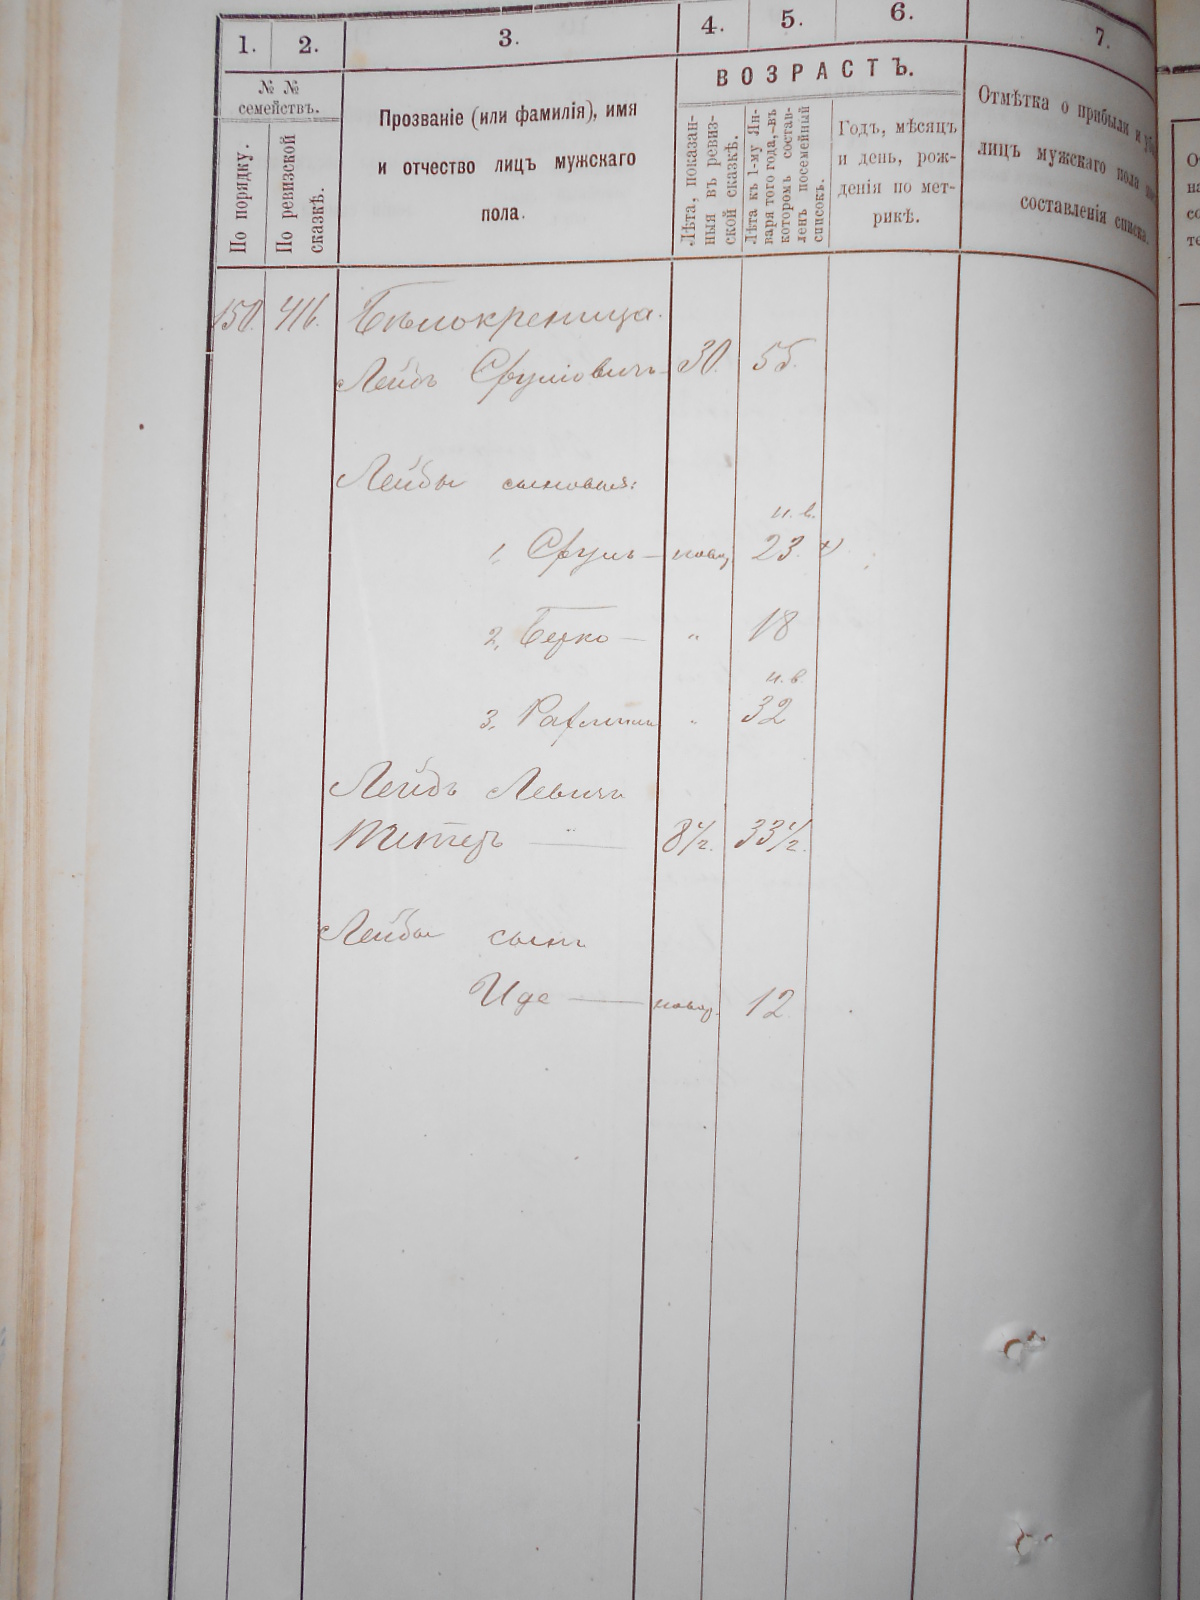 1.
2.
3.
4.
5.
6.
7.
№ №
семействъ.
По порядку.
По ревизской
сказкѣ.
Прозваніе (или фамилія), имя
и отчество лицъ мужскаго
пола.
ВОЗРАСТЪ.
Лѣта, показан-
ныя въ ревиз-
ской сказкѣ.
Лѣта къ 1-му Ян-
варя того года, въ
которомъ состав-
ленъ посемейный
списокъ.
Годъ, мѣсяцъ
и день, рож-
денія по мет-
рикѣ.
Отмѣтка о прибыли и
лицъ мужскаго пола
составленія списка.
150. 416. Бѣлокреница.
Лейбъ Сруліовичъ 30. 55.
Лейбы сыновья:
н. в.
1. Сруль — новор. 23.
2. Берко — " 18
н. в.
3. " 32
Лейбъ Левичъ
— " — 8½. 33½.
Лейбы сынъ
Иде — новор. 12.